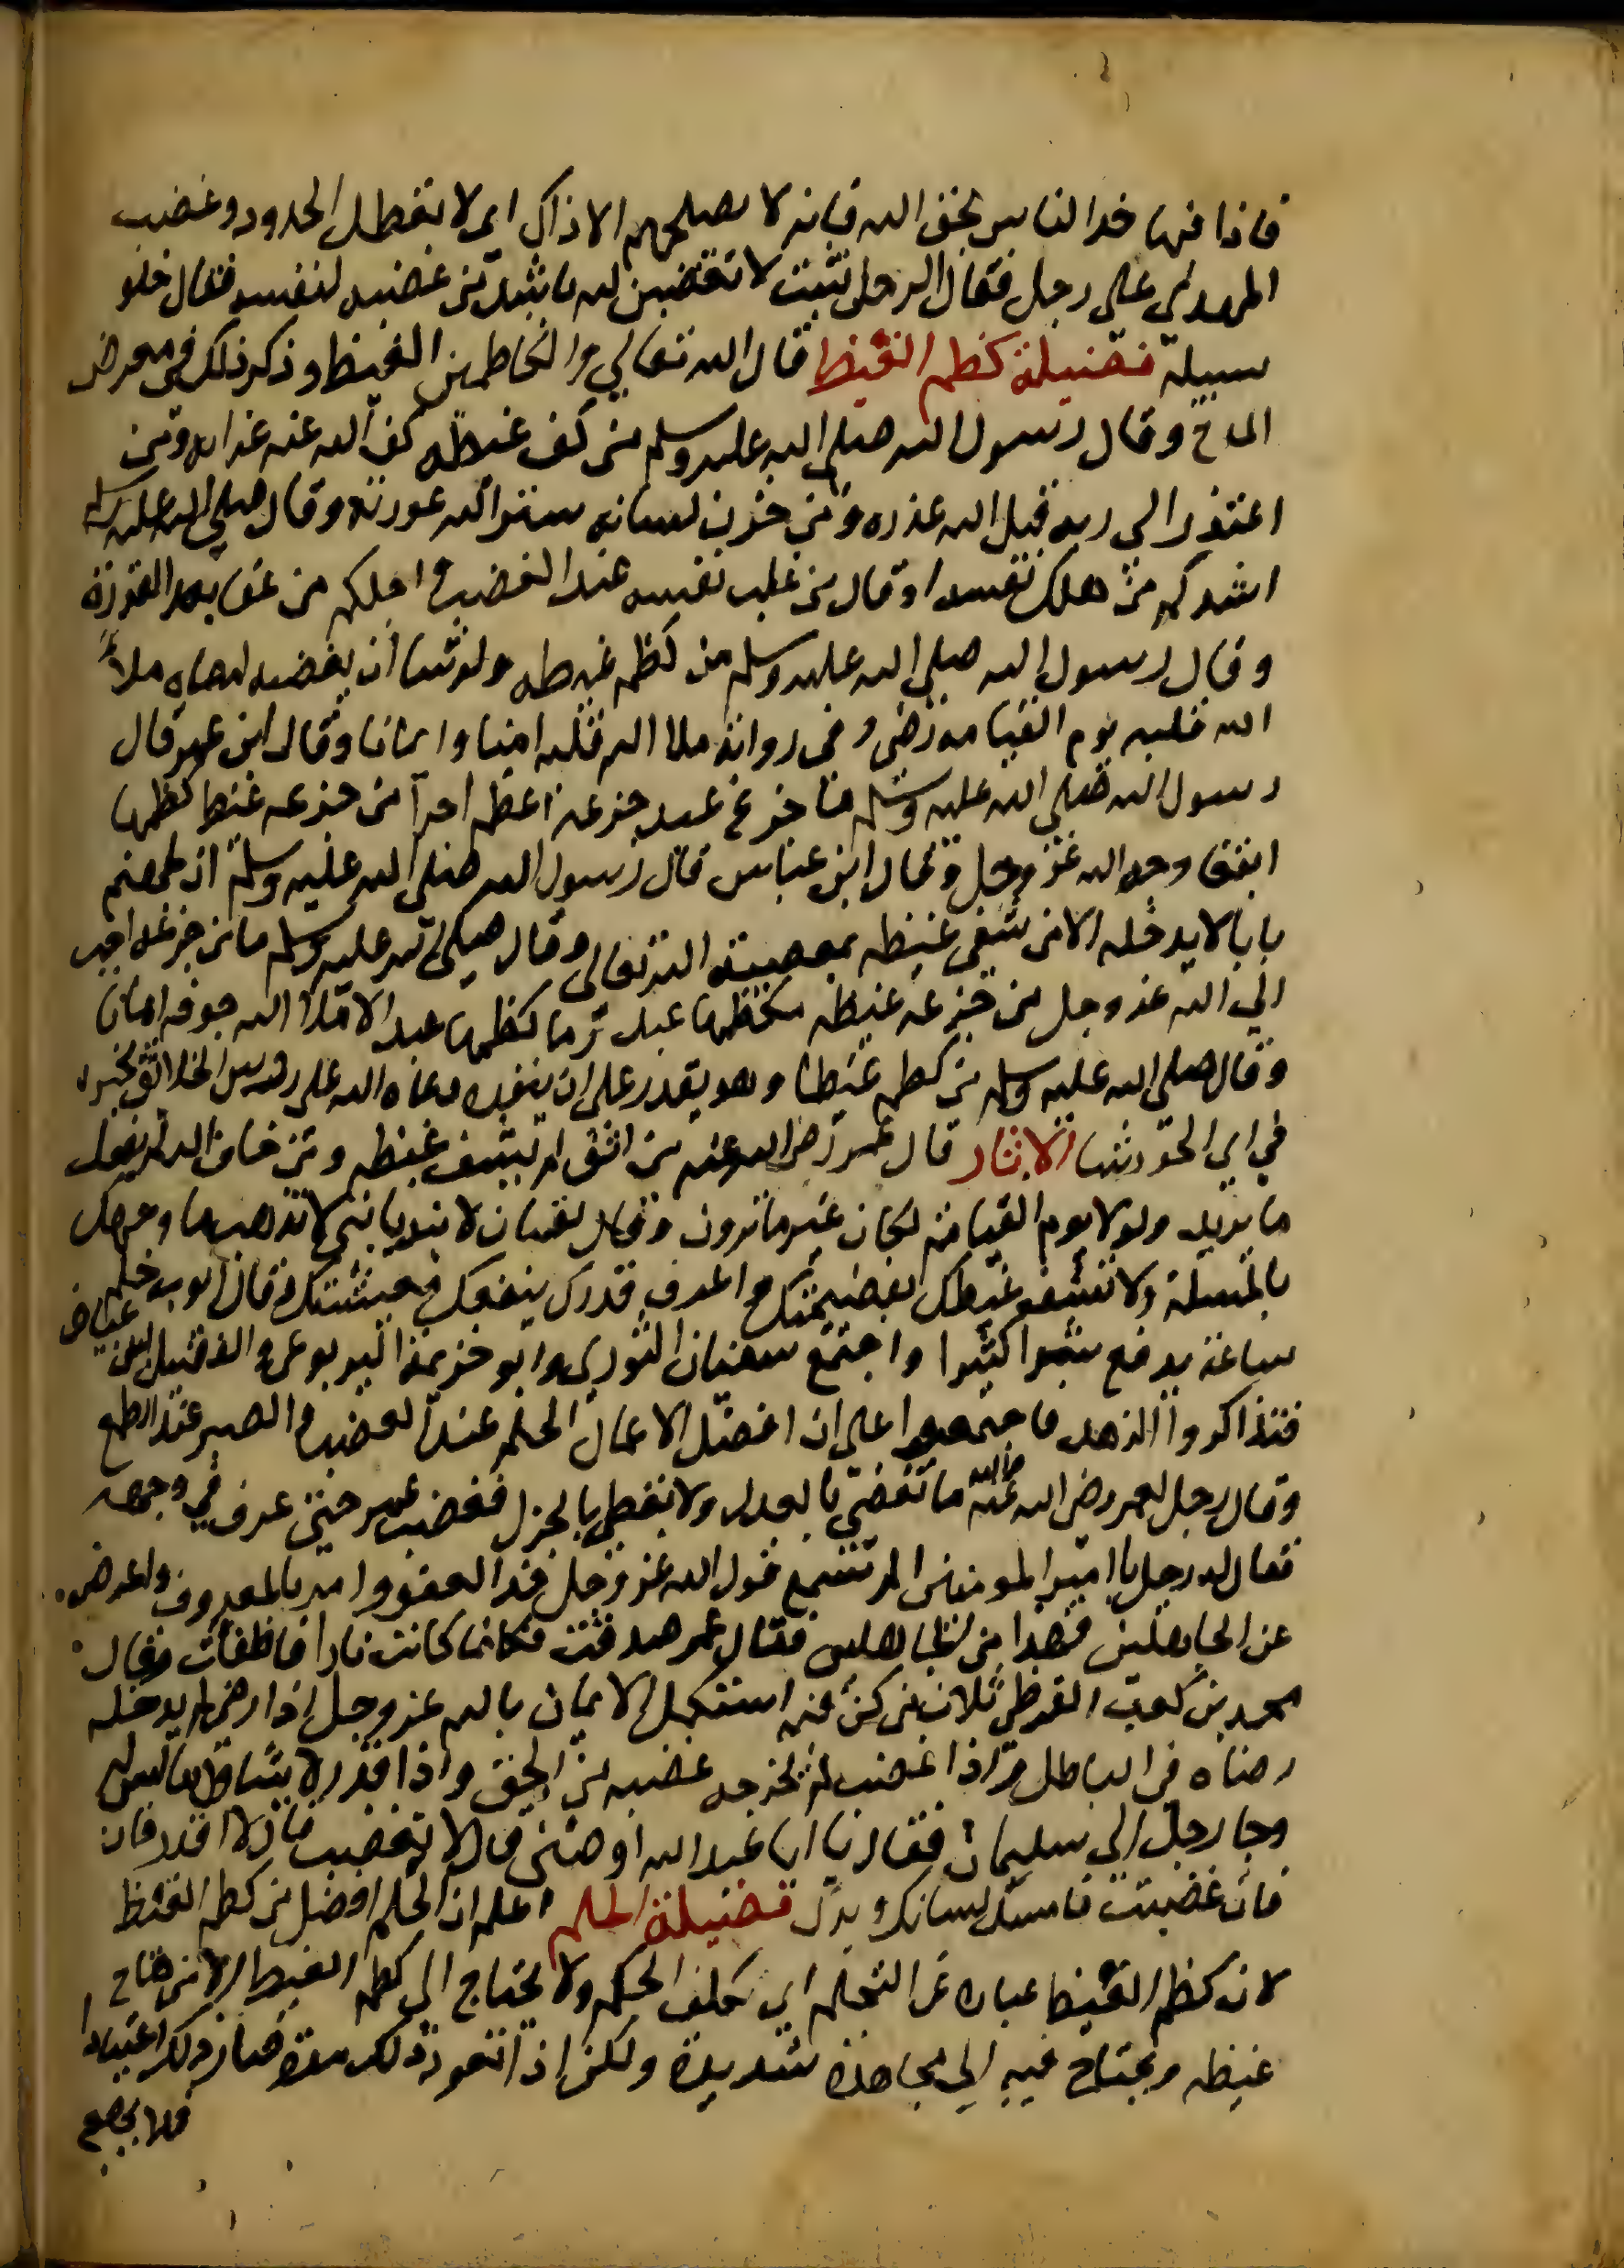 فاذا فيها خذ الناس بحق الله فانه لا يصلحهم الا ذاك اي لا تعطل الحدود وغضب
المهدي على رجل فقال الرجل شبيب لا تغضبن لله باشد من غضبه لنفسه فقال خلوا
سبيله فضيلة كظم الغيظ قال الله تعالي والكاظمين الغيظ وذكر ذلك في معرض
المدح وقال رسول الله صلى الله عليه وسلم من كف غيظه كف الله عنه عذابه ومن
اعتذر الي ربه قبل الله عذره ومن خزن لسانه ستر الله عورته وقال صلى الله عليه وسلم
اشدكم من غلب نفسه عند الغضب واحلكم من عفا بعد القدرة
وقال رسول الله صلى الله عليه وسلم من كظم غيظه ولو شا ان يمضيه امضاه ملا
الله قلبه يوم القيامة رضى وفي رواية ملا الله قلبه امنا وايمانا وقال ابن عمر قال
رسول الله صلى الله عليه وسلم ما جرع عبد جرعة اعظم اجرا من جرعة غيظ كظمها
ابتغا وجه الله عز وجل وقال ابن عباس قال رسول الله صلى الله عليه وسلم ان لجهنم
بابا لا يدخله الا من شفى غيظه بمعصية الله تعالى وقال صلى الله عليه وسلم ما من جرعة احب
الي الله عز وجل من جرعة غيظ كظمها عبد وما كظمها عبد الا ملا الله جوفه ايمانا
وقال صلى الله عليه وسلم من كظم غيظا وهو يقدر على ان ينفذه دعاه الله على روس الخلائق يخيره
في اي الحور شا الاثار قال عمر رضي الله عنه من اتقى الله لم يشف غيظه ومن خاف الله لم يفعل
ما يريد ولولا يوم القيامة لكان غير ما ترون وقال لقمان لابنه يا بني لا تذهب ما وجهك
بالمسلة ولا تشف غيظك بفضيحتك واعرف قدرك ينفعك معيشتك وقال ايوب حلم
ساعة يدفع شرا كثيرا واجتمع سفيان الثوري وابو خزيمة اليربوعي والفضيل ابن عياض
فتذاكروا الزهد فاجتمعوا على ان افضل الاعمال الحلم عند الغضب والصبر عند الطمع
وقال رجل لعمر رضي الله عنه والله ما تقضي بالعدل ولا تعطي بالجزل فغضب عمر حتى عرف في وجهه
فقال له رجل يا امير المومنين الم تسمع قول الله عز وجل خذ العفو وامر بالمعروف واعرض
عن الجاهلين فهذا من الجاهلين فقال عمر صدقت فكانما كانت نارا فاطفات وقال
محمد بن كعب القرظي ثلاث من كن فيه استكمل الايمان بالله عز وجل اذا رضي لم يدخله
رضاه في الباطل واذا غضب لم يخرجه غضبه من الحق واذا قدر لا يتناول ما ليس له
وجا رجل الي سليمان فقال يا ابا عبد الله اوصني قال لا تغضب قال لا اقدر قال
فان غضبت فامسك لسانك ويدك فضيلة الحلم اعلم ان الحلم افضل من كظم الغيظ
لان كظم الغيظ عبارة عن التحلم اي تكلف الحلم ولا يحتاج الي كظم الغيظ الا من هاج
غيظه ويحتاج فيه الى مجاهدة شديدة ولكن اذا تعود ذلك مدة صار ذلك اعتيادا
فلا يهيج